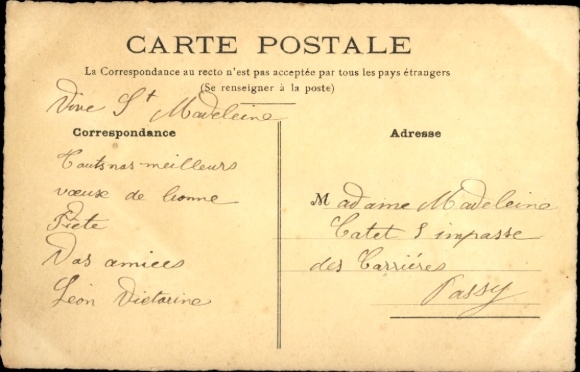 CARTE POSTALE
La Correspondance au recto n'est pas acceptée par tous les pays étrangers
(Se renseigner à la poste)
Vive St Madeleine
Correspondance
Touts nos meilleurs
vœux de bonne
Fête
Vos amies
Léon Victorine
Adresse
Madame Madeleine
Catet 5 impasse
des Carriéres
Passy